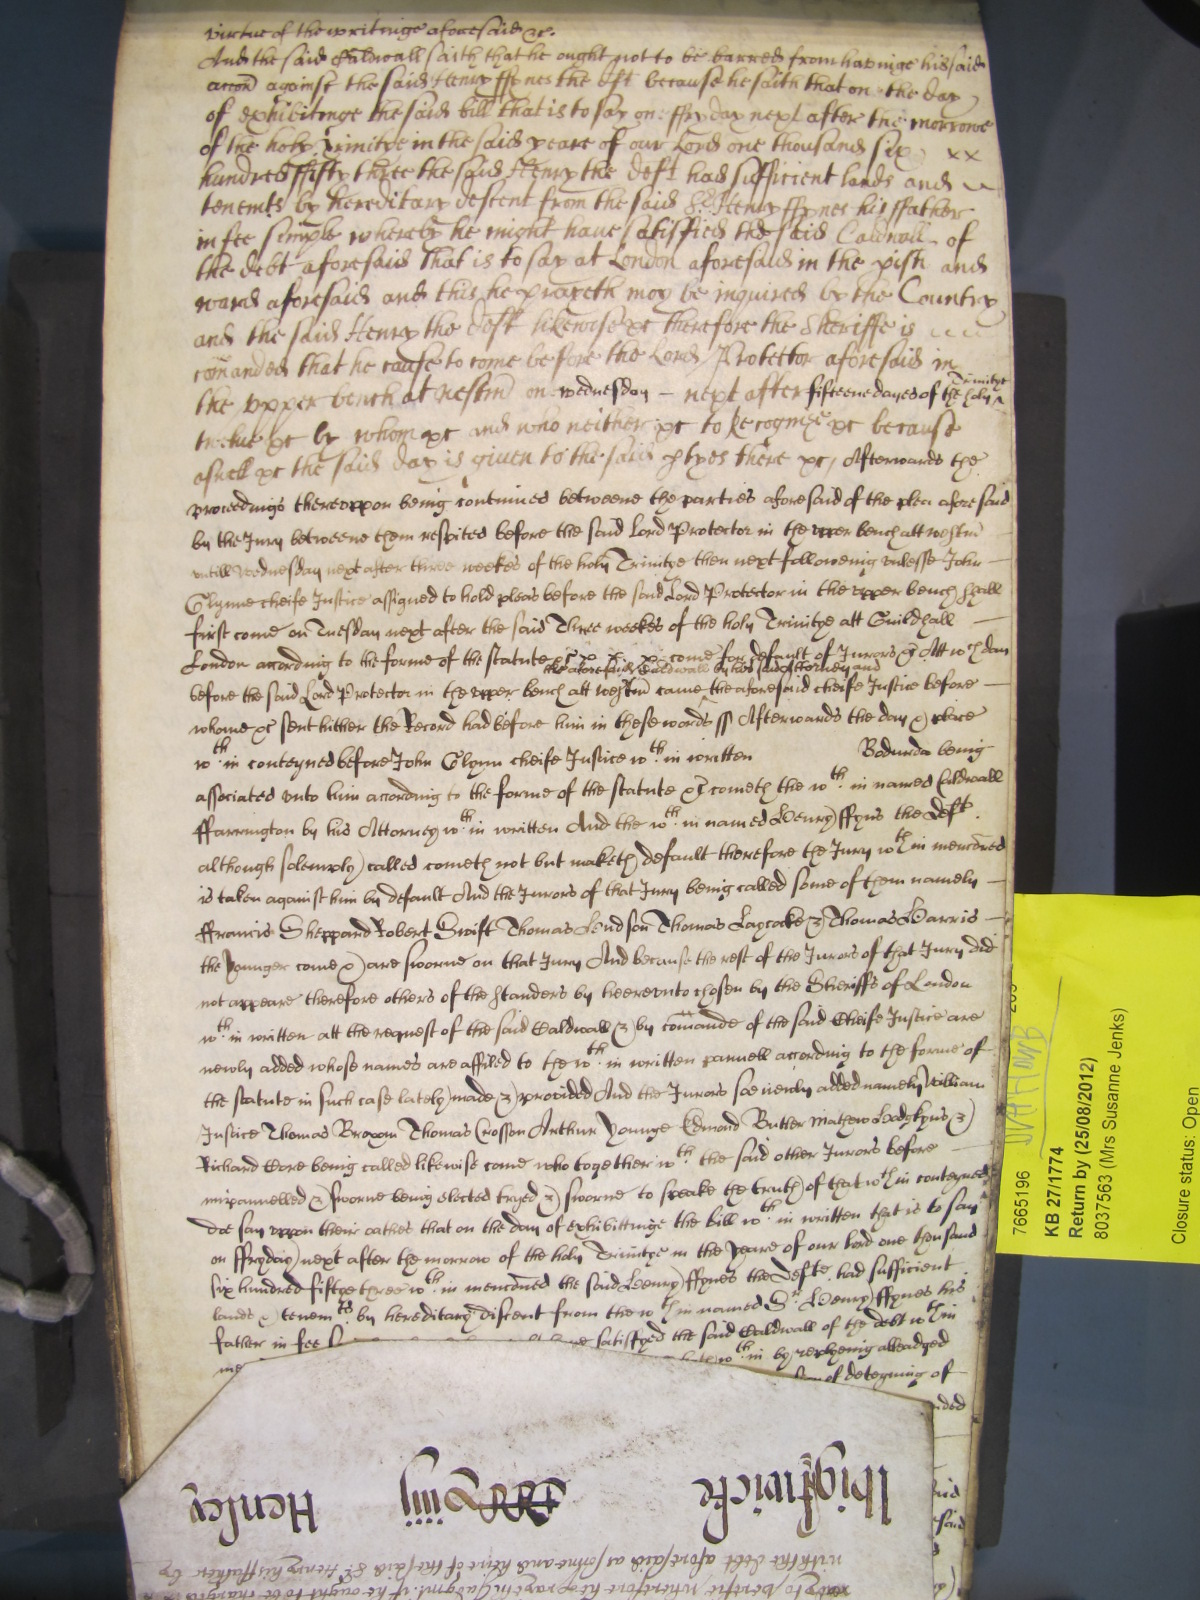 virtue of the writinge aforesaid &c.
And the said Caldwall saith that he ought not to be barred from havinge his said
accon against the said Henry ffynes the deft because he saith that on the day
of exhibitinge the said bill that is to say on ffryday next after the morrowe
of the holy Trinitye in the said yeare of our Lord one thousand six xx
hundred fifty three the said Henry the deft had sufficient lands and
tenemts by hereditary descent from the said Sr Henry ffynes his ffather
in fee simple whereby he might have satisfied the said Caldwall of
the debt aforesaid that is to say at London aforesaid in the pish and
ward aforesaid and this he prayeth may be inquired by the Country
and the said Henry the deft likewise &c therefore the Sheriffe is
comanded that he cause to come before the Lord Protector aforesaid in
the upper bench at Westm on wednesday – next after fifteene dayes of the holy Trinitye
twelve &c by whom &c and who neither &c to Recognize &c because
aswell &c the said day is given to the said ptyes there &c, Afterwards the
proceedings thereuppon being continued betweene the parties aforesaid of the plea aforesaid
by the Jury betweene them respited before the said Lord Protector in the upper bench att westm
untill Wednesday next after three weekes of the holy Trinitye then next followeing unlesse John
Glynne cheife Justice assigned to hold pleas before the said Lord Protector in the upper bench shall
first come on Tuesday next after the said Three weekes of the holy Trinitye att Guildhall
London according to the forme of the statute &c come for default of Jurors &c Att wch day
the aforesaid Caldwall by his said Attorney and
before the said Lord Protector in the upper bench att westm came the aforesaid cheife Justice before
whome &c sent hither the Record had before him in these words ss Afterwards the day & place
wth in conteyned before John Glynn cheife Justice wth in written Bodurda being
associated unto him according to the forme of the statute &c cometh the wth in named Caldwall
ffarrington by his Attorney wth in written And the wth in named Henry ffyns the Deft
although solemnly called cometh not but maketh default therefore the Jury wth in menconed
is taken against him by default And the Jurors of that Jury being called some of them namely
ffrancis Sheppard Robert Swift Thomas Hudson Thomas Laycocke & Thomas Harris
the Younger come & are sworne on that Jury And because the rest of the Jurors of that Jury did
not appeare therefore others of the standers by heereunto chosen by the Sheriffs of London
wth in written att the request of the said Caldwall & by comande of the said Cheife Justice are
newly added whose names are affiled to the wth in written pannell according to the forme of
the statute in such case lately made & provided And the Jurors soe newly added namely William
Justice Thomas Broxon Thomas Crosson Arthur Younge Edmond Butler Mathew Hodgkyns &
Richard Hore being called likewise come who together wth the said other Jurors before
impannelled & sworne being elected tryed & sworne to speake the truth of that wth in conteyned
doe say uppon their oathes that on the day of exhibittinge the bill wth in written that is to say
on ffryday next after the morrow of the holy Trinitye in the Yeare of our lord one thousand
six hundred fiftye three wth in menconed the said Henry ffynes the Defte had sufficient
lands & tenemts by hereditary discent from the wth in named Sr Henry ffynes his
father in fee satisfyed the said Caldwall of the debt wth in
wth in by replyeing alleadged
of deteyning of
said
Henley iiij Highwicke
with the debt aforesaid as sonne and heire of the said Sr Henry his ffather by
to verifie wherefore he prayeth Judgmt if he ought to be charged
7665196
KB 27/1774
Return by (25/08/2012)
8037563 (Mrs Susanne Jenks)
Closure status: Open